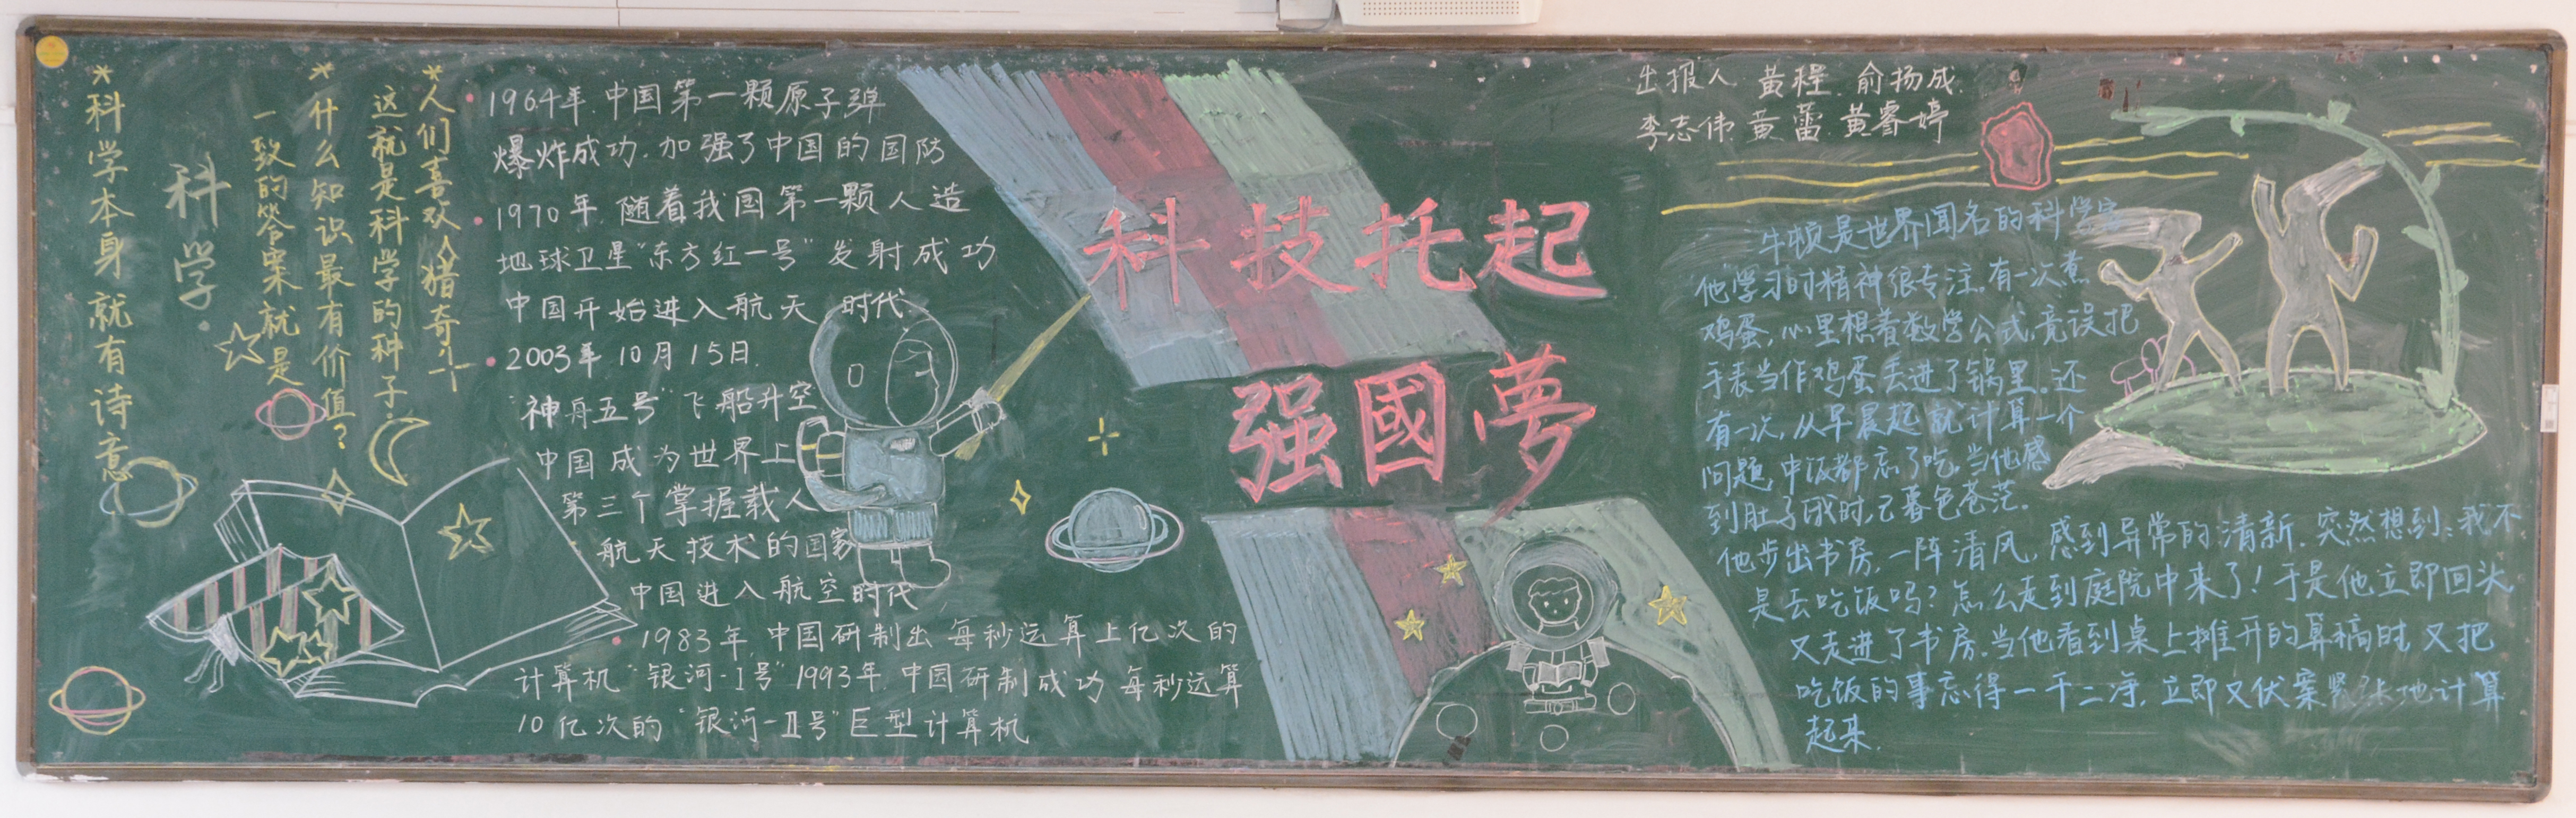 *人们喜欢猎奇
这就是科学的种子.
*什么知识最有价值?
一致的答案就是
科学.
*科学本身就有诗意
1964年.中国第一颗原子弹
爆炸成功.加强了中国的国防
1970年.随着我国第一颗人造
地球卫星"东方红一号"发射成功
中国开始进入航天时代
2003年10月15日.
"神舟五号"飞船升空
中国成为世界上
第三个掌握载人
航天技术的国家
中国进入航空时代
1983年.中国研制出每秒运算上亿次的
计算机"银河-I号"1993年.中国研制成功每秒运算
10亿次的"银河-II号"巨型计算机
科技托起
强國夢
出报人 黄程.俞扬成.
李志伟 黄蕾.黄睿婷
牛顿是世界闻名的科学家
他学习时精神很专注.有一次煮
鸡蛋,心里想着数学公式,竟误把
手表当作鸡蛋丢进了锅里.还
有一次,从早晨起就计算一个
问题,中饭都忘了吃.当他感
到肚子饿时,已暮色苍茫.
他步出书房,一阵清风,感到异常的清新.突然想到:我不
是去吃饭吗?怎么走到庭院中来了!于是他立即回头
又走进了书房.当他看到桌上摊开的算稿时,又把
吃饭的事忘得一干二净,立即又伏案紧张地计算
起来.